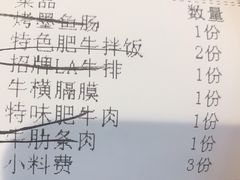 菜品 数量
烤墨鱼肠 1份
特色肥牛拌饭 2份
招牌LA牛排 1份
牛横膈膜 1份
特味肥牛肉 1份
牛肋条肉 1份
小料费 3份